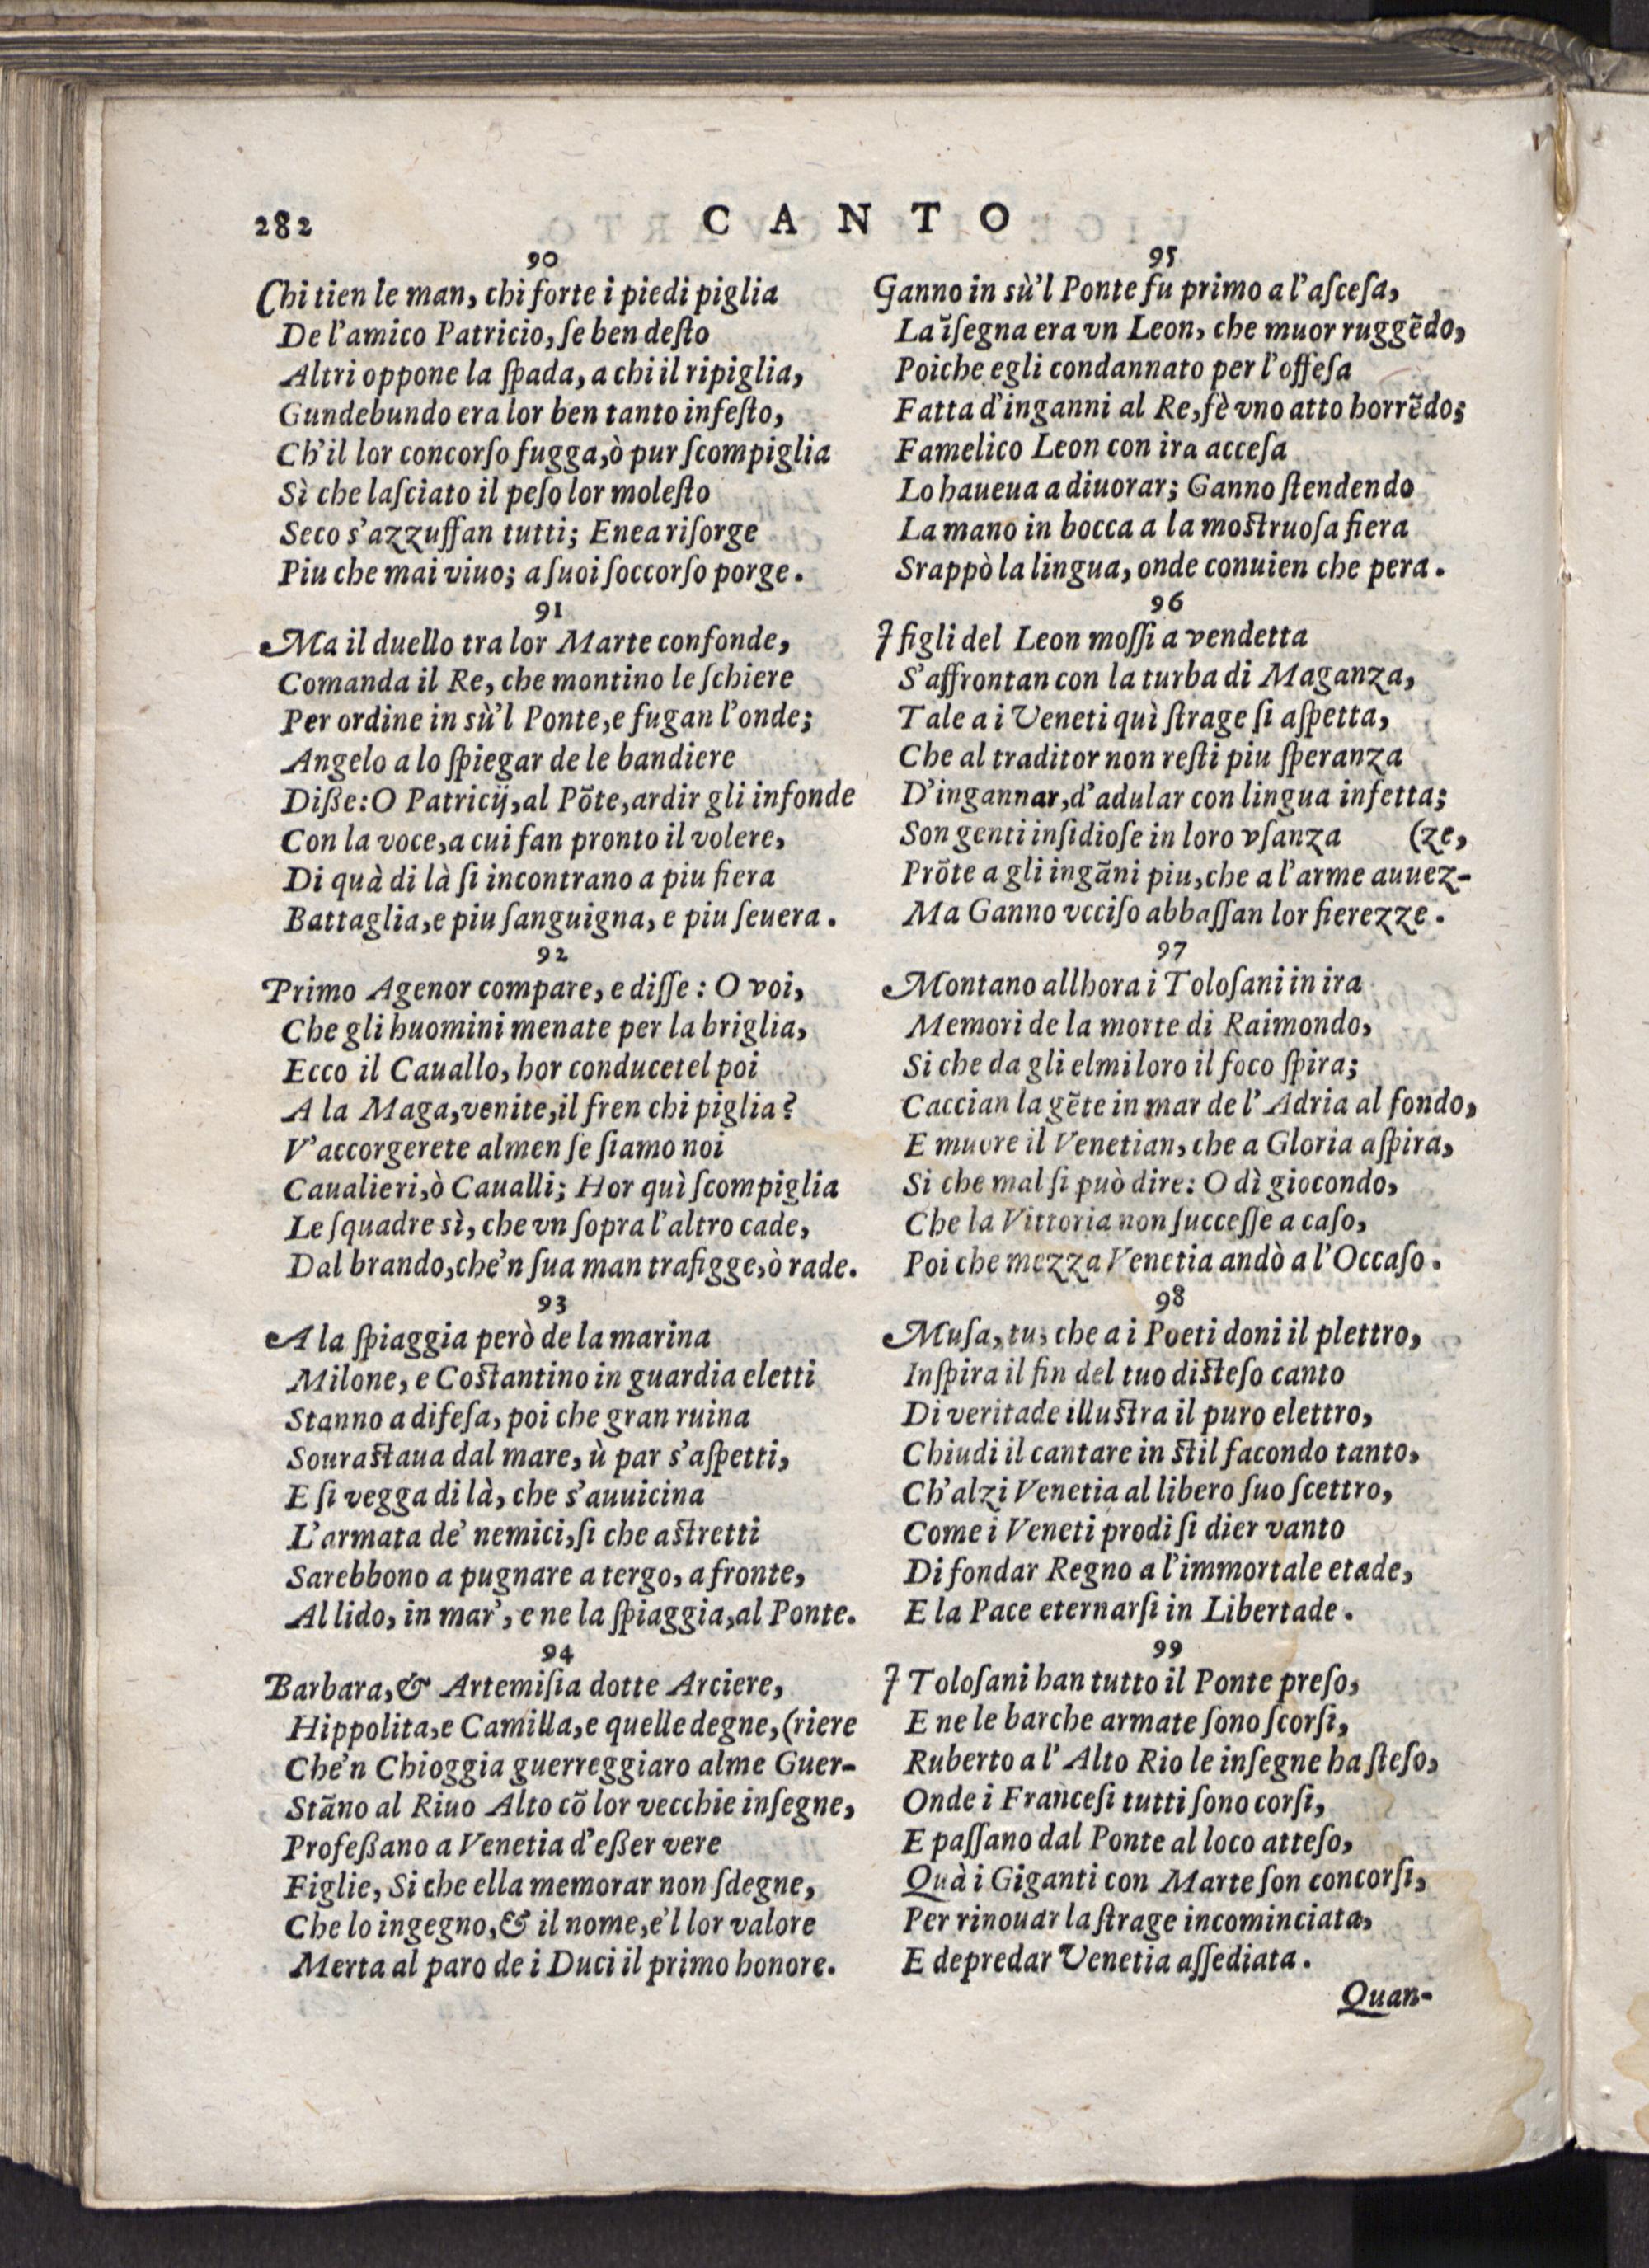 282
CANTO
90
Chi tien le man, chi forte i piedi piglia
De l'amico Patricio, ſe ben deſto
Altri oppone la ſpada, a chi il ripiglia,
Gundebundo era lor ben tanto infeſto,
Ch'il lor concorſo fugga, ò pur ſcompiglia
Sì che laſciato il peſo lor moleſto
Seco s'azzuffan tutti; Enea riſorge
Piu che mai viuo; a ſuoi ſoccorſo porge.
91
Ma il duello tra lor Marte confonde,
Comanda il Re, che montino le ſchiere
Per ordine in sù'l Ponte, e fugan l'onde;
Angelo a lo ſpiegar de le bandiere
Diße: O Patricij, al Põte, ardir gli infonde
Con la voce, a cui fan pronto il volere,
Di quà di là ſi incontrano a piu fiera
Battaglia, e piu ſanguigna, e piu ſeuera.
92
Primo Agenor compare, e diſſe: O voi,
Che gli huomini menate per la briglia,
Ecco il Cauallo, hor conducetel poi
A la Maga, venite, il fren chi piglia?
V'accorgerete almen ſe ſiamo noi
Caualieri, ò Caualli; Hor quì ſcompiglia
Le ſquadre sì, che vn ſopra l'altro cade,
Dal brando, che'n ſua man trafigge, ò rade.
93
A la ſpiaggia però de la marina
Milone, e Coſtantino in guardia eletti
Stanno a difeſa, poi che gran ruina
Souraſtaua dal mare, ù par s'aſpetti,
E ſi vegga di là, che s'auuicina
L'armata de' nemici, ſi che aſtretti
Sarebbono a pugnare a tergo, a fronte,
Al lido, in mar', e ne la ſpiaggia, al Ponte.
94
Barbara, & Artemiſia dotte Arciere,
Hippolita, e Camilla, e quelle degne, (riere
Che'n Chioggia guerreggiaro alme Guer-
Stãno al Riuo Alto cõ lor vecchie inſegne,
Profeßano a Venetia d'eßer vere
Figlie, Si che ella memorar non ſdegne,
Che lo ingegno, & il nome, e'l lor valore
Merta al paro de i Duci il primo honore.
95
Ganno in sù'l Ponte fu primo a l'aſceſa,
La ĩſegna era vn Leon, che muor ruggẽdo,
Poiche egli condannato per l'offeſa
Fatta d'inganni al Re, fè vno atto horrẽdo;
Famelico Leon con ira acceſa
Lo haueua a diuorar; Ganno ſtendendo
La mano in bocca a la moſtruoſa fiera
Srappò la lingua, onde conuien che pera.
96
I figli del Leon moſſi a vendetta
S'affrontan con la turba di Maganza,
Tale a i Veneti quì ſtrage ſi aſpetta,
Che al traditor non reſti piu ſperanza
D'ingannar, d'adular con lingua infetta;
Son genti inſidioſe in loro vſanza (ze,
Prõte a gli ingãni piu, che a l'arme auuez-
Ma Ganno vcciſo abbaſſan lor fierezze.
97
Montano allhora i Toloſani in ira
Memori de la morte di Raimondo,
Si che da gli elmi loro il foco ſpira;
Caccian la gẽte in mar de l'Adria al fondo,
E muore il Venetian, che a Gloria aſpira,
Si che mal ſi può dire: O dì giocondo,
Che la Vittoria non ſucceſſe a caſo,
Poi che mezza Venetia andò a l'Occaſo.
98
Muſa, tu, che a i Poeti doni il plettro,
Inſpira il fin del tuo diſteſo canto
Di veritade illuſtra il puro elettro,
Chiudi il cantare in ſtil facondo tanto,
Ch'alzi Venetia al libero ſuo ſcettro,
Come i Veneti prodi ſi dier vanto
Di fondar Regno a l'immortale etade,
E la Pace eternarſi in Libertade.
99
I Toloſani han tutto il Ponte preſo,
E ne le barche armate ſono ſcorſi,
Ruberto a l'Alto Rio le inſegne ha ſteſo,
Onde i Franceſi tutti ſono corſi,
E paſſano dal Ponte al loco atteſo,
Quà i Giganti con Marte ſon concorſi,
Per rinouar la ſtrage incominciata,
E depredar Venetia aſſediata.
Quan-